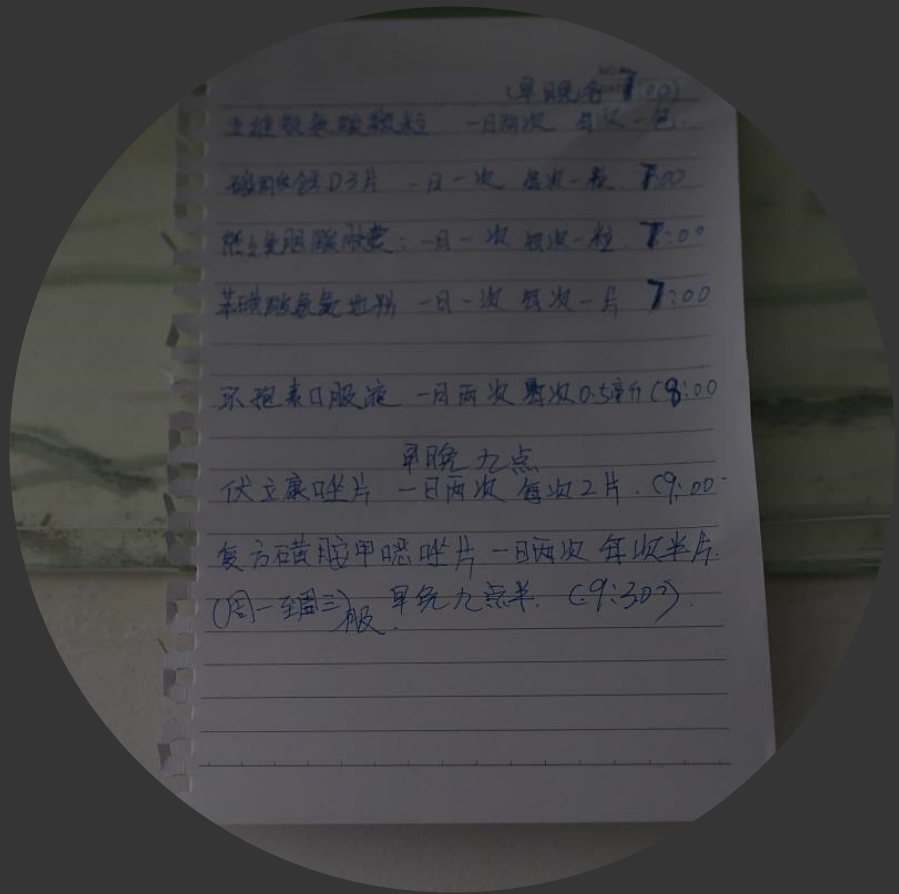 (早晚各 7:00)
一日两次 每次一包.
碳酸钙D3片 一日一次 每次一粒 7:00
熊去氧胆酸胶囊: 一日一次 每次一粒. 7:00
苯磺酸氨氯地平 一日一次 每次一片 7:00
环孢素口服液 一日两次 每次0.5毫升(8:00
早晚九点
伏立康唑片 一日两次 每次2片.(9:00
复方磺胺甲噁唑片 一日两次 每次半片.
(周一至周三)服. 早晚九点半. (9:30).